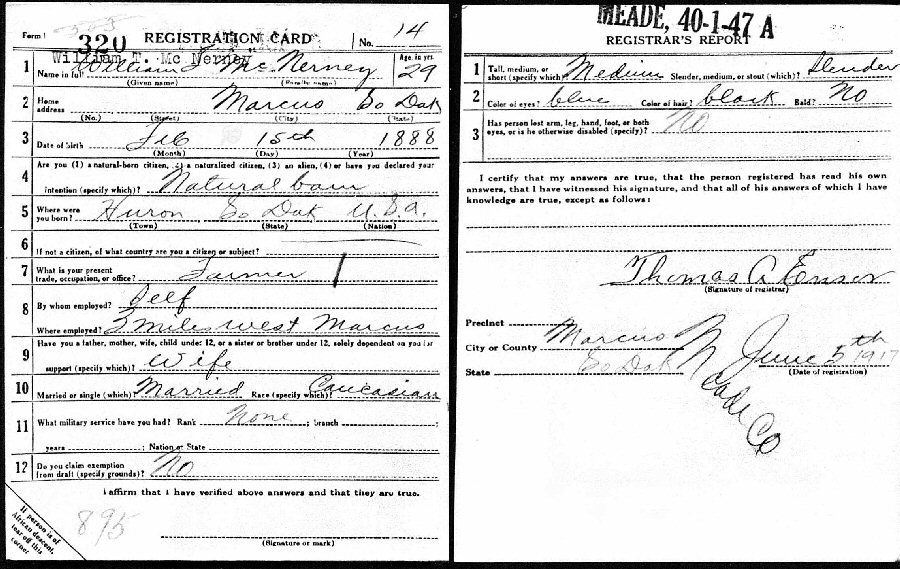 Form 1 320 REGISTRATION CARD No. 14
William T. Mc Nerney
1 Name in full William T Mc Nerney Age, in yrs. 29
(Given name) (Family name)
2 Home address Marcus So Dak
(No.) (Street) (City) (State)
3 Date of birth Feb 15th 1888
(Month) (Day) (Year)
4 Are you (1) a natural-born citizen, (2) a naturalized citizen, (3) an alien, (4) or have you declared your
intention (specify which)? Natural born
5 Where were you born? Huron So Dak U.S.A.
(Town) (State) (Nation)
6 If not a citizen, of what country are you a citizen or subject?
7 What is your present trade, occupation, or office? Farmer
8 By whom employed? Self
Where employed? 3 miles west Marcus
9 Have you a father, mother, wife, child under 12, or a sister or brother under 12, solely dependent on you for
support (specify which)? Wife
10 Married or single (which) Married Race (specify which)? Caucasian
11 What military service have you had? Rank None ; branch ;
years ; Nation or State
12 Do you claim exemption from draft (specify grounds)? No
I affirm that I have verified above answers and that they are true.
895
(Signature or mark)
If person is of
African descent,
tear off this
corner.
MEADE, 40-1-47 A
REGISTRAR'S REPORT
1 Tall, medium, or short (specify which) Medium Slender, medium, or stout (which)? Slender
2 Color of eyes? blue Color of hair? black Bald? No
3 Has person lost arm, leg, hand, foot, or both eyes, or is he otherwise disabled (specify)? No
I certify that my answers are true, that the person registered has read his own
answers, that I have witnessed his signature, and that all of his answers of which I have
knowledge are true, except as follows:
Thomas A Ensor
(Signature of registrar)
Precinct
City or County Marcus June 5th 1917
State So Dak (Date of registration)
Meade Co